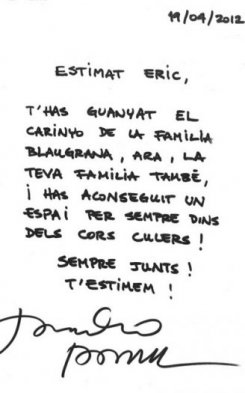 19/04/2012
ESTIMAT ERIC,
T'HAS GUANYAT EL
CARINYO DE LA FAMILIA
BLAUGRANA, ARA, LA
TEVA FAMILIA TAMBÉ,
i HAS ACONSEGUIT UN
ESPAi PER SEMPRE DINS
DELS CORS CULERS!
SEMPRE JUNTS!
T'ESTIMEM!